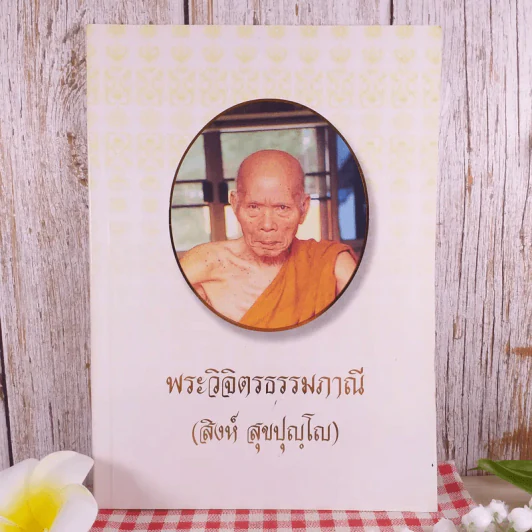 พระวิจิตรธรรมภาณี
(สิงห์ สุขปุญฺโญ)